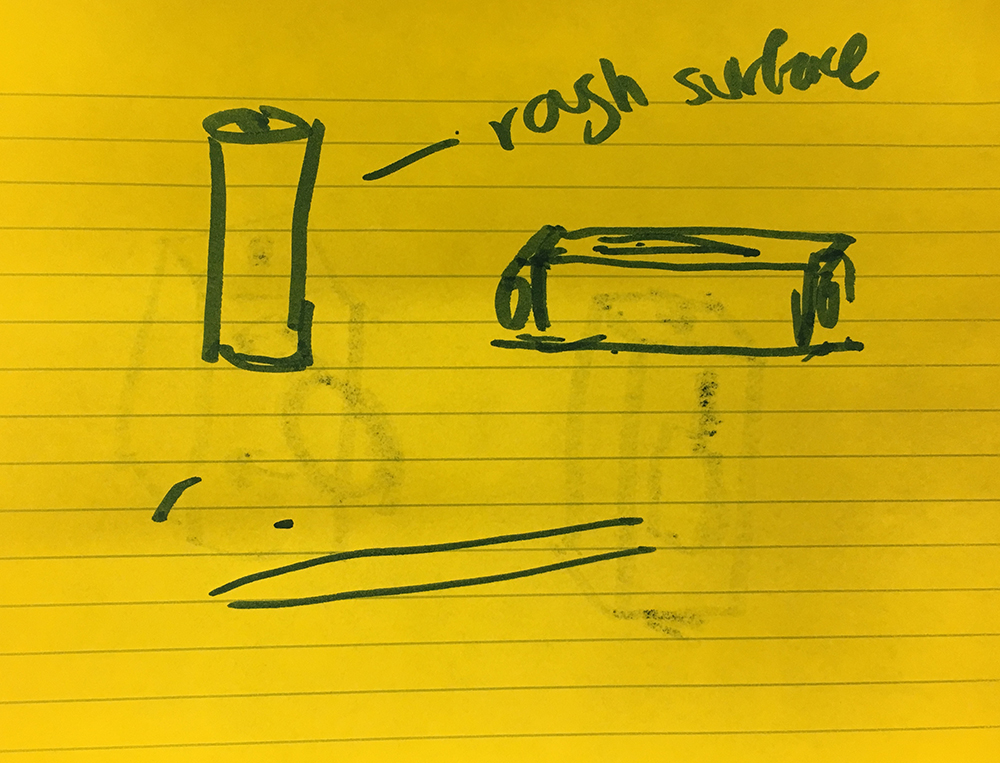 rough surface